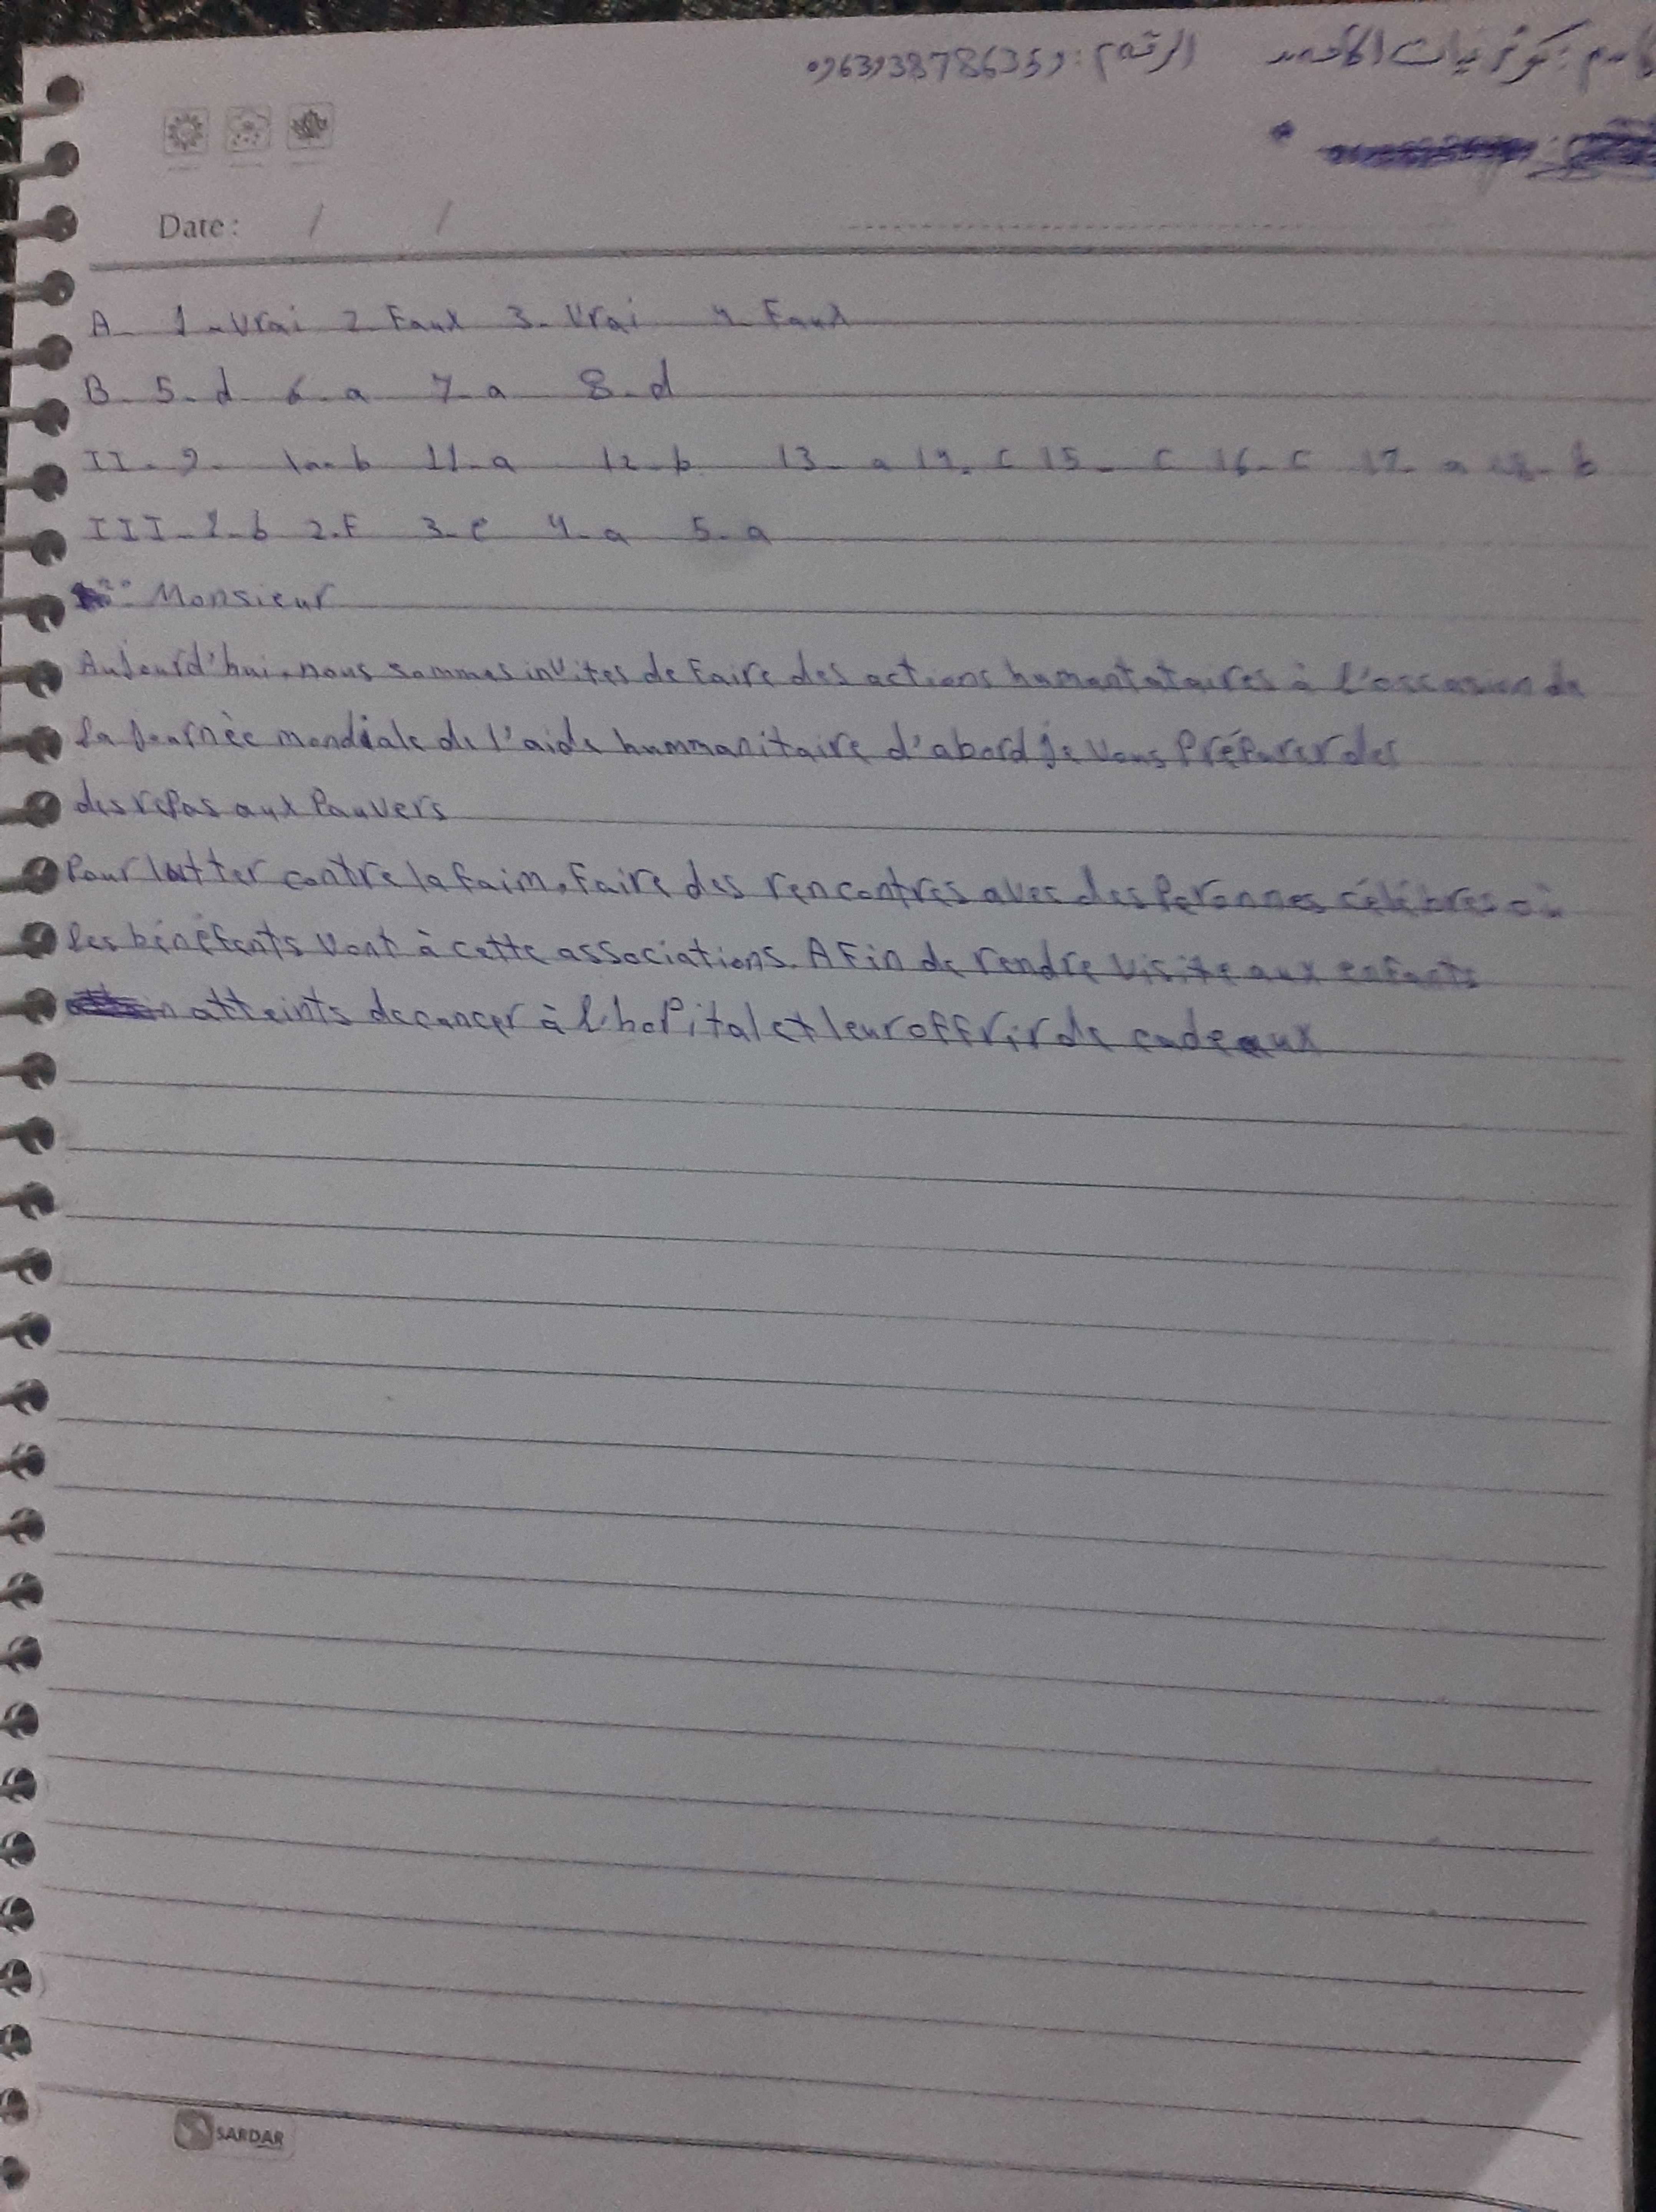 الرقم: 0963938786359
Date: / /
A- 1-Vrai 2-Faux 3-Vrai 4-Faux
B- 5-d 6-a 7-a 8-d
II-9- 10-b 11-a 12-b 13-a 14-c 15-c 16-c 17-a 18-b
III-1-b 2-F 3-e 4-a 5-a
Monsieur
Aujourd'hui, nous sommes invites de faire des actions humantataires à l'occasion de
la Journèe mondiale de l'aide hummanitaire d'abord je vous Préparer des
des repas aux Pauvers
Pour lutter contre la faim, faire des rencontres avec des Peronnes célébres où
les bénéfents vont à cette associations. Afin de rendre visite aux enfants
atteints de cancer à l'hopital et leur offrir de cadeaux
SARDAR